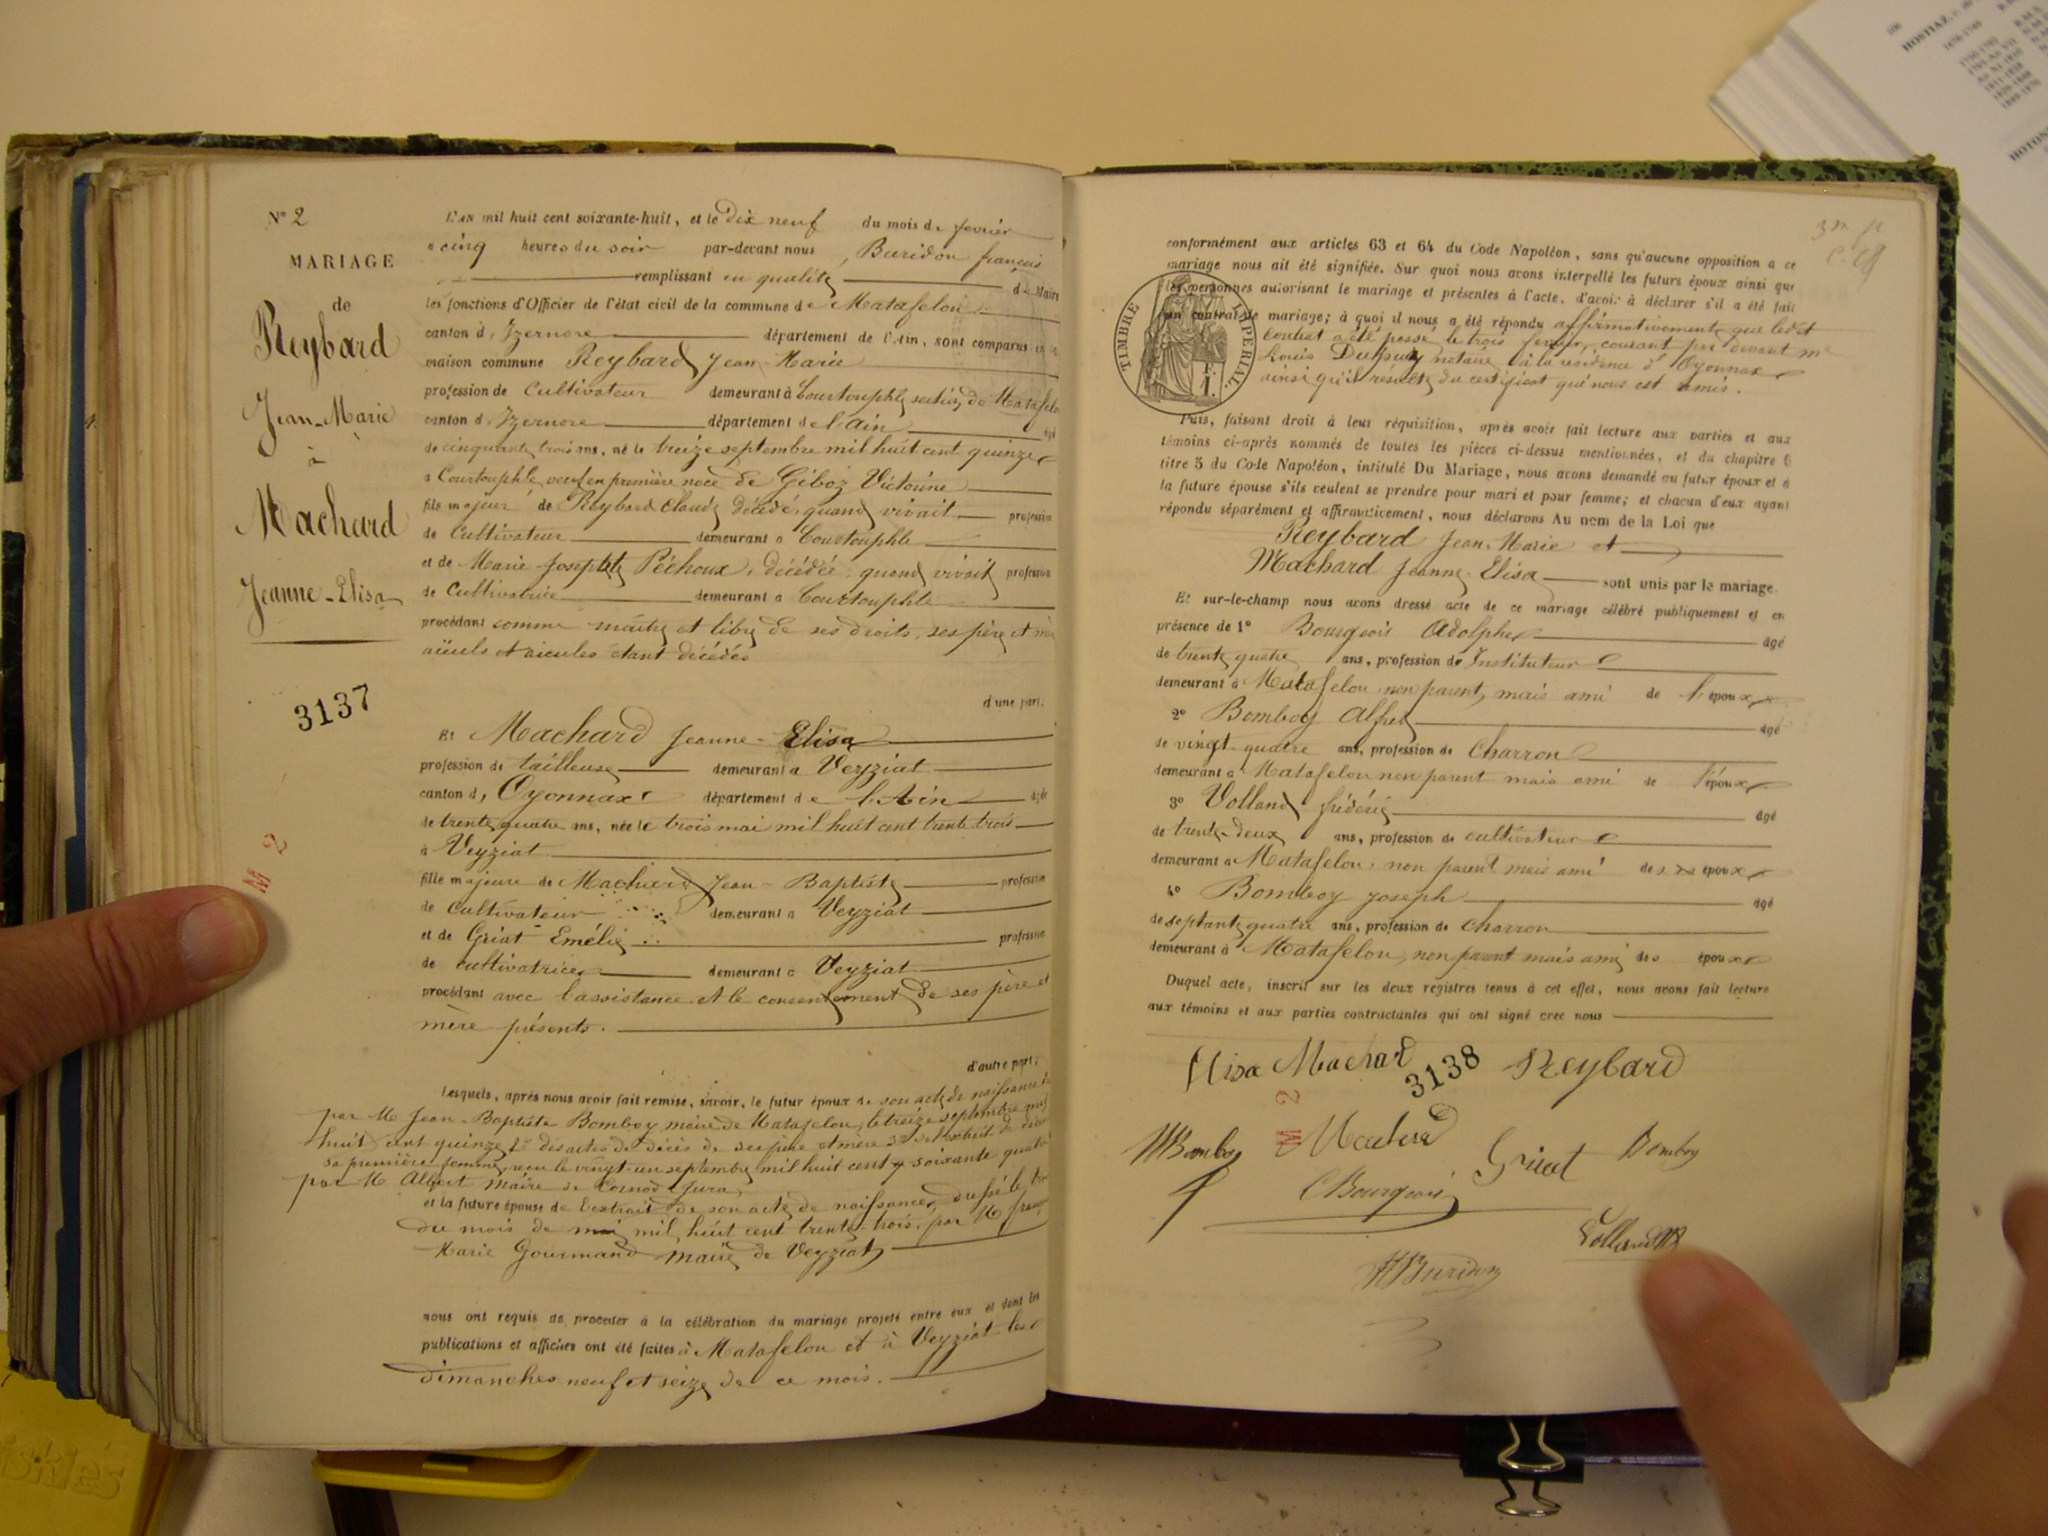 N° 2
MARIAGE
de
Reybard
Jean-Marie
à
Machard
Jeanne-Elisa
3137
M 2
L'AN mil huit cent soixante-huit, et le dix neuf du mois de fevrier
a cinq heures du soir par-devant nous, Buridon françois
remplissant en qualité de Maire
les fonctions d'Officier de l'état civil de la commune de Matafelon
canton d, Izernore département de l'Ain, sont comparus
maison commune Reybard Jean-Marie
profession de Cultivateur demeurant à Courtouphle section de Matafelon
canton d, Izernore département de l'Ain âgé
de cinquante trois ans, né le treize septembre mil huit cent quinze
a Courtouphle veuf en première noce de Giboz Victorine
fils majeur de Reybard Claude décédé, quand vivait profession
de Cultivateur demeurant a Courtouphle
et de Marie Josephte Péchoux, décédée, quand vivait profession
de Cultivatrice demeurant a Courtouphle
procédant comme maître et libre de ses droits, ses père et mère
aïeuls et aïeules étant décédés
d'une part.
Et Machard Jeanne-Elisa
profession de tailleuse demeurant a Veyziat
canton d, Oyonnax département de l'Ain âgée
de trente quatre ans, née le trois mai mil huit cent trente trois
à Veyziat
fille majeure de Machard Jean-Baptiste profession
de Cultivateur demeurant a Veyziat
et de Griat Emélie profession
de cultivatrice demeurant a Veyziat
procédant avec l'assistance et le consentement de ses père et
mère présents.
d'autre part;
Lesquels, après nous avoir fait remise, savoir, le futur époux de son acte de naissance
par M Jean-Baptiste Bomboy maire de Matafelon, le treize septembre mil
huit cent quinze 2° des actes de décès de ses père et mère 3° de l'extrait de décès
sa première femme, reçu le vingt-un septembre mil huit cent soixante quatre
par M Albert maire de Cornod Jura
et la future épouse de l'extrait de son acte de naissance, dressé le trois
du mois de mai mil huit cent trente-trois, par M
Marie Gourmand maire de Veyziat
nous ont requis de procéder à la célébration du mariage projeté entre eux et dont les
publications et affiches ont été faites à Matafelon et à Veyziat les
dimanches neuf et seize de ce mois.
conformément aux articles 63 et 64 du Code Napoléon, sans qu'aucune opposition a ce
mariage nous ait été signifiée. Sur quoi nous avons interpellé les futurs époux ainsi que
les personnes autorisant le mariage et présentes à l'acte, d'avoir à déclarer s'il a été fait
un contrat de mariage; à quoi il nous a été répondu affirmativement que ledit
contrat a été passé le trois fevrier, courant par devant me
Louis Dupuy notaire à la résidence d'Oyonnax
ainsi qu'il résulte du certificat qui nous est remis.
TIMBRE IMPERIAL
Puis, faisant droit à leur réquisition, après avoir fait lecture aux parties et aux
témoins ci-après nommés de toutes les pièces ci-dessus mentionnées, et du chapitre 6
titre 5 du Code Napoléon, intitulé Du Mariage, nous avons demandé au futur époux et à
la future épouse s'ils veulent se prendre pour mari et pour femme; et chacun d'eux ayant
répondu séparément et affirmativement, nous déclarons Au nom de la Loi que
Reybard Jean-Marie et
Machard Jeanne-Elisa sont unis par le mariage.
Et sur-le-champ nous avons dressé acte de ce mariage célébré publiquement et en
présence de 1° Bourgeois Adolphe âgé
de trente quatre ans, profession de Instituteur
demeurant à Matafelon non parent, mais ami de l'époux
2° Bomboy Alfred âgé
de vingt-quatre ans, profession de Charron
demeurant a Matafelon non parent mais ami de l'époux
3° Volland frédéric âgé
de trente-deux ans, profession de cultivateur
demeurant a Matafelon, non parent mais ami des époux
4° Bomboy Joseph âgé
de septante quatre ans, profession de Charron
demeurant à Matafelon, non parent mais ami des époux
Duquel acte, inscrit sur les deux registres tenus à cet effet, nous avons fait lecture
aux témoins et aux parties contractantes qui ont signé avec nous
Elisa Machard 3138 Reybard
M 2
Bomboy Machard Griat Bomboy
Bourgeois
Volland
Buridon
HOSTIAZ